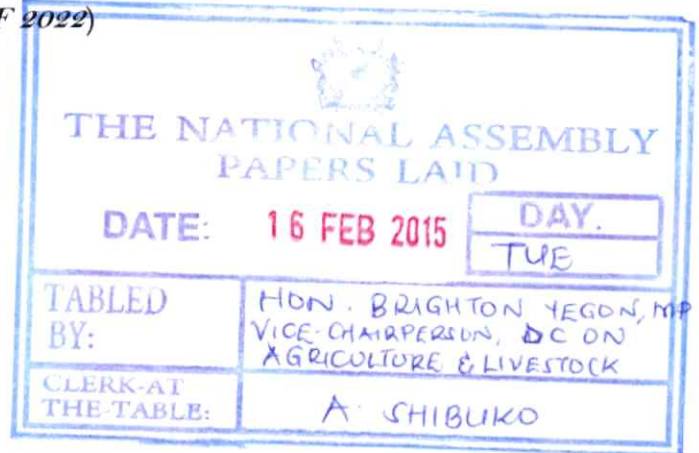 F 2022)
THE NATIONAL ASSEMBLY
PAPERS LAID
DATE: 16 FEB 2015
DAY.
TUE
TABLED BY:
HON. BRIGHTON YEGON, MP
VICE-CHAIRPERSON, DC ON
AGRICULTURE & LIVESTOCK
CLERK-AT
THE-TABLE:
A. SHIBUKO